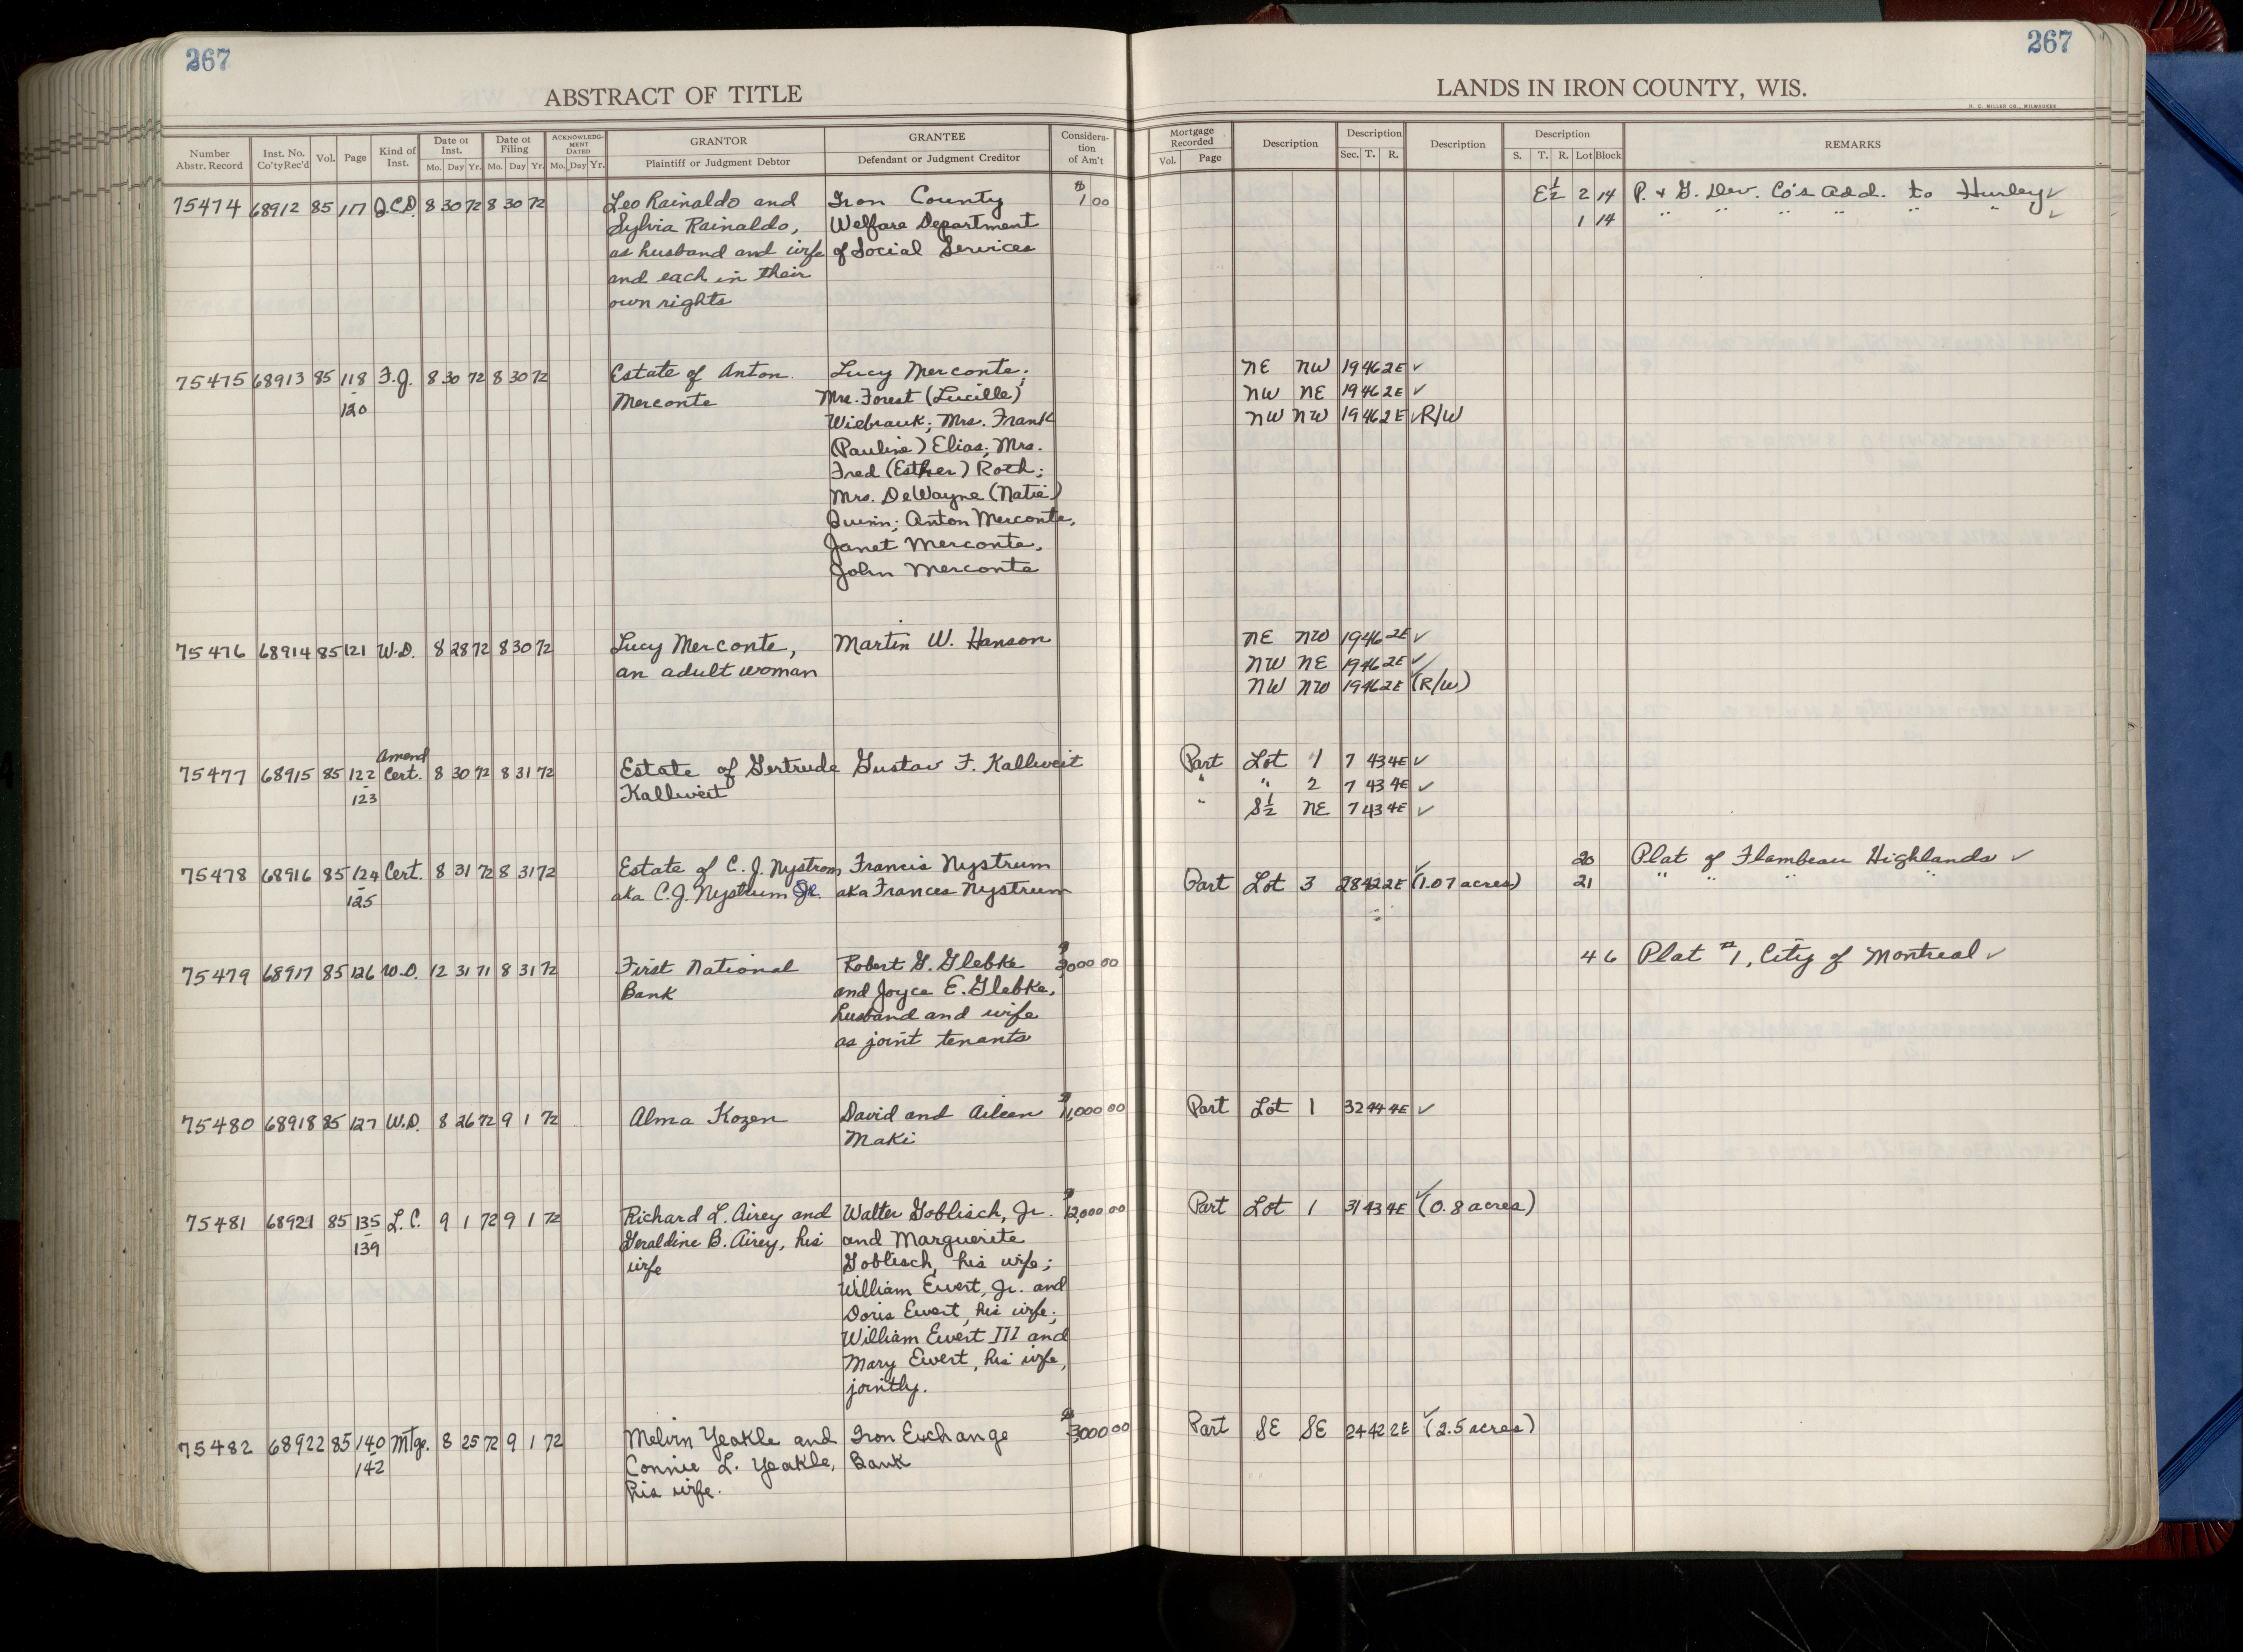 267
267
ABSTRACT OF TITLE
LANDS IN IRON COUNTY, WIS.
H. C. MILLER CO., MILWAUKEE
Number Abstr. Record Inst. No. Co'ty Rec'd Vol. Page Kind of Inst. Date of Inst. Mo. Day Yr. Date of Filing Mo. Day Yr. ACKNOWLEDGMENT DATED Mo. Day Yr. GRANTOR Plaintiff or Judgment Debtor GRANTEE Defendant or Judgment Creditor Consideration of Am't
Mortgage Recorded Vol. Page Description Description Sec. T. R. Description Description S. T. R. Lot Block REMARKS
75474 68912 85 117 Q.C.D. 8 30 72 8 30 72 Leo Rainaldo and Iron County $1 00 E½ 2 14 P. & G. Dev. Co's Add. to Hurley ✓
Sylvia Rainaldo, Welfare Department 1 14 " " " " " " ✓
as husband and wife of Social Services
and each in their
own rights
75475 68913 85 118 F.J. 8 30 72 8 30 72 Estate of Anton Lucy Merconte; NE NW 19 46 2E ✓
- 120 Merconte Mrs. Forest (Lucille) NW NE 19 46 2E ✓
Wiebrauk; Mrs. Frank NW NW 19 46 2E ✓ R/W
(Pauline) Elias; Mrs.
Fred (Esther) Roth;
Mrs. DeWayne (Natie)
Quinn; Anton Merconte,
Janet Merconte,
John Merconte
75476 68914 85 121 W.D. 8 28 72 8 30 72 Lucy Merconte, Martin W. Hanson NE NW 19 46 2E ✓
an adult woman NW NE 19 46 2E ✓
NW NW 19 46 2E ✓ (R/W)
Amend
75477 68915 85 122 Cert. 8 30 72 8 31 72 Estate of Gertrude Gustav F. Kallweit Part Lot 1 7 43 4E ✓
- 123 Kallweit " " 2 7 43 4E ✓
" S½ NE 7 43 4E ✓
75478 68916 85 124 Cert. 8 31 72 8 31 72 Estate of C. J. Nystrom Francis Nystrum 20 Plat of Flambeau Highlands ✓
- 125 aka C.J. Nystrum Jr. aka Frances Nystrum Part Lot 3 28 42 2E ✓ (1.07 acres) 21 " " " "
75479 68917 85 126 W.D. 12 31 71 8 31 72 First National Robert G. Glebke $ 00 46 Plat #1, City of Montreal ✓
Bank and Joyce E. Glebke,
husband and wife
as joint tenants
75480 68918 85 127 W.D. 8 26 72 9 1 72 Alma Kozen David and Aileen $1,000 00 Part Lot 1 32 44 4E ✓
Maki
75481 68921 85 135 L.C. 9 1 72 9 1 72 Richard L. Airey and Walter Goblisch, Jr. $12,000 00 Part Lot 1 31 43 4E ✓ (0.8 acres)
- 139 Geraldine B. Airey, his and Marguerite
wife Goblisch, his wife;
William Ewert, Jr. and
Doris Ewert, his wife;
William Ewert III and
Mary Ewert, his wife,
jointly.
75482 68922 85 140 Mtge. 8 25 72 9 1 72 Melvin Yeakle and Iron Exchange $3000 00 Part SE SE 24 42 2E ✓ (2.5 acres)
- 142 Connie L. Yeakle, Bank
his wife.